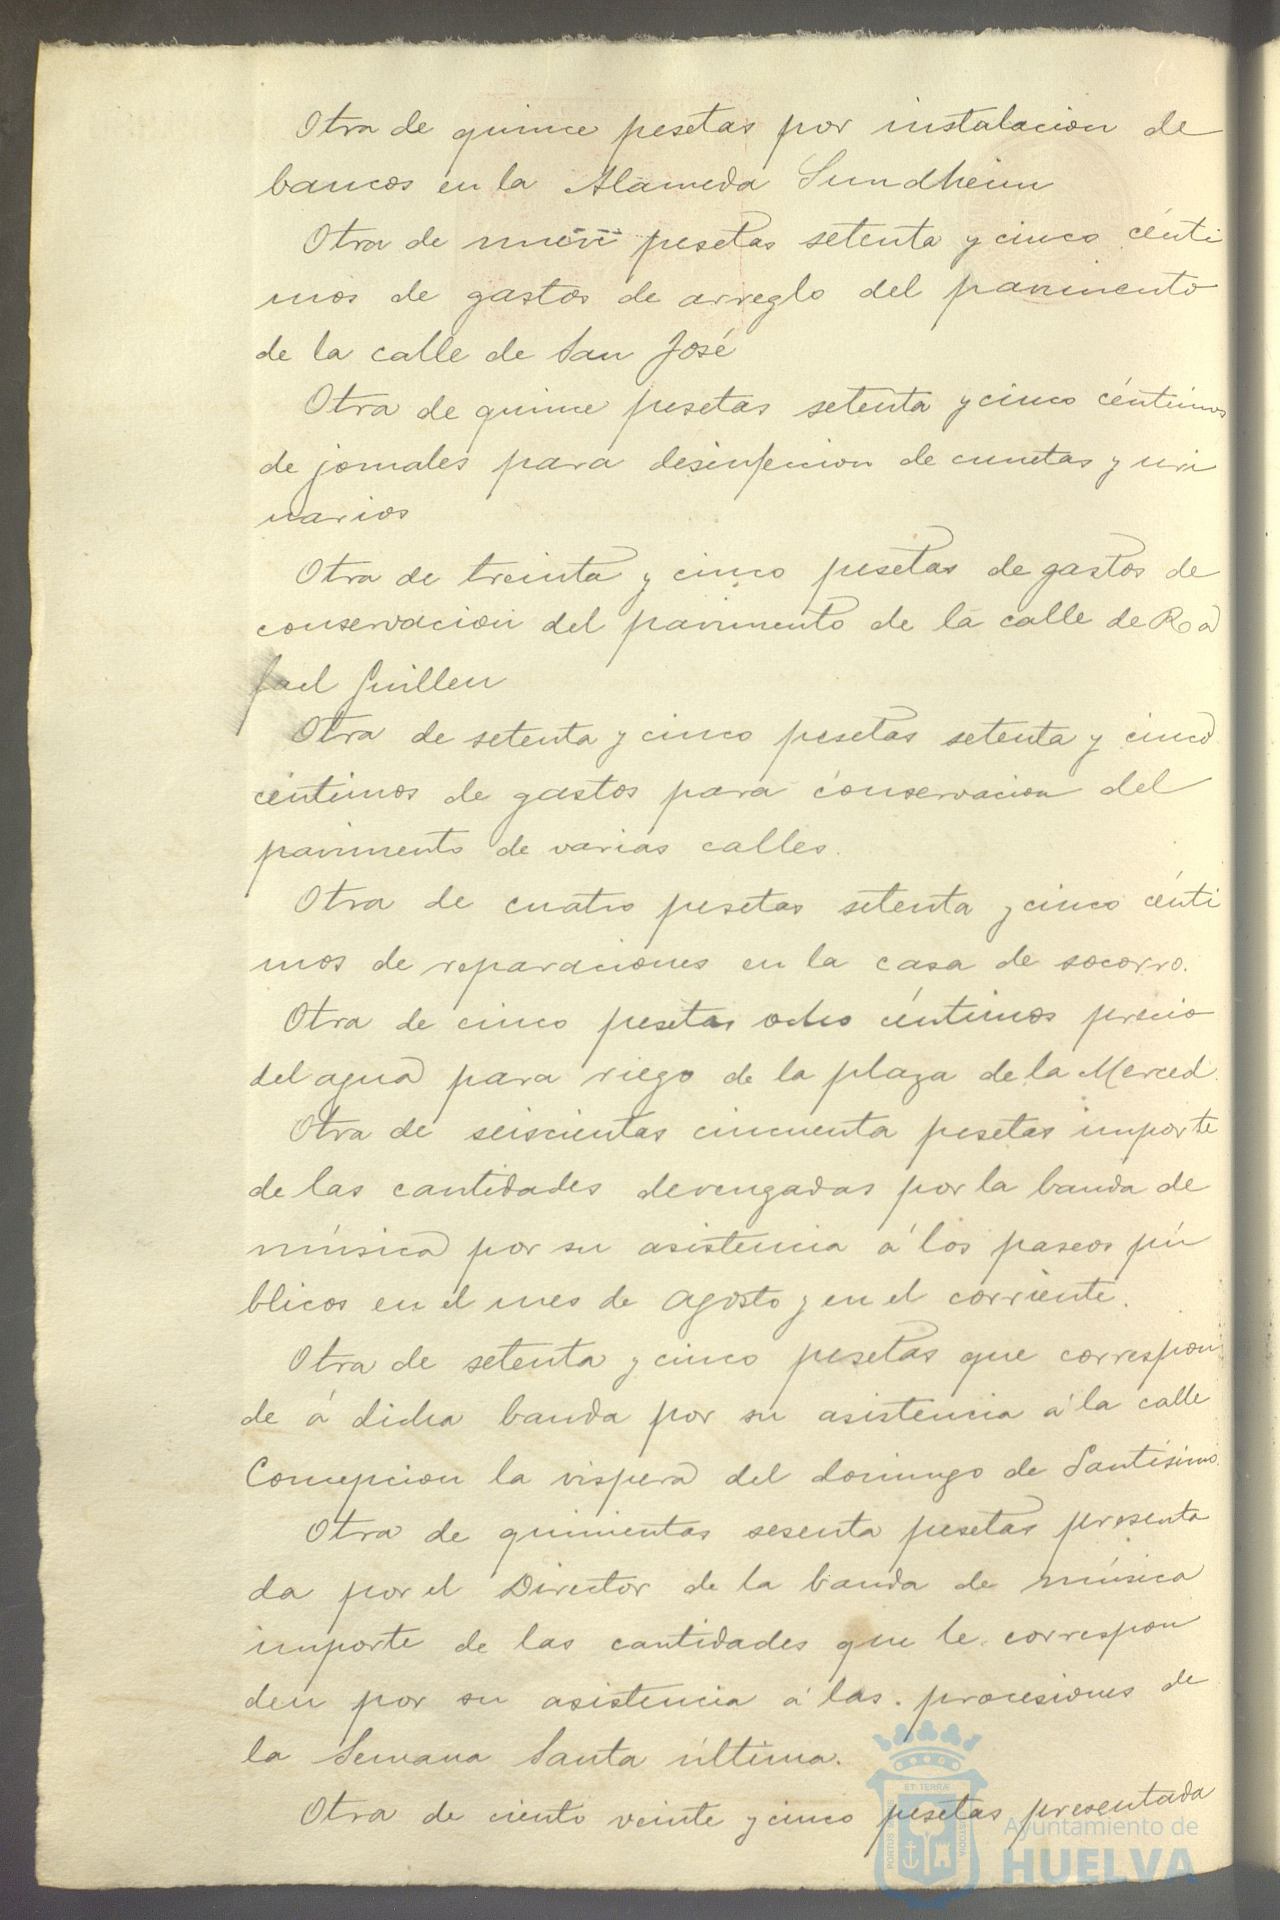 Otra de quince pesetas por instalacion de
bancos en la Alameda Sundheim
Otra de nueve pesetas setenta y cinco cénti
mos de gastos de arreglo del pavimento
de la calle de San José
Otra de quince pesetas setenta y cinco céntimos
de jornales para desinfeccion de cunetas y uri
narios
Otra de treinta y cinco pesetas de gastos de
conservacion del pavimento de la calle de Ra
fael Guillen
Otra de setenta y cinco pesetas setenta y cinco
céntimos de gastos para conservacion del
pavimento de varias calles.
Otra de cuatro pesetas setenta y cinco cénti
mos de reparaciones en la casa de socorro.
Otra de cinco pesetas ocho céntimos precio
del agua para riego de la plaza de la Merced.
Otra de seiscientas cincuenta pesetas importe
de las cantidades devengadas por la banda de
música por su asistencia á los paseos pú
blicos en el mes de Agosto y en el corriente.
Otra de setenta y cinco pesetas que correspon
de á dicha banda por su asistencia á la calle
Concepcion la vispera del domingo de Santísimo.
Otra de quinientas sesenta pesetas presenta
da por el Director de la banda de música
importe de las cantidades que le correspon
den por su asistencia á las procesiones de
la Semana Santa última.
Otra de ciento veinte y cinco pesetas presentada
Ayuntamiento de
HUELVA
PORTUS MARIS
ET TERRÆ
CUSTODIA